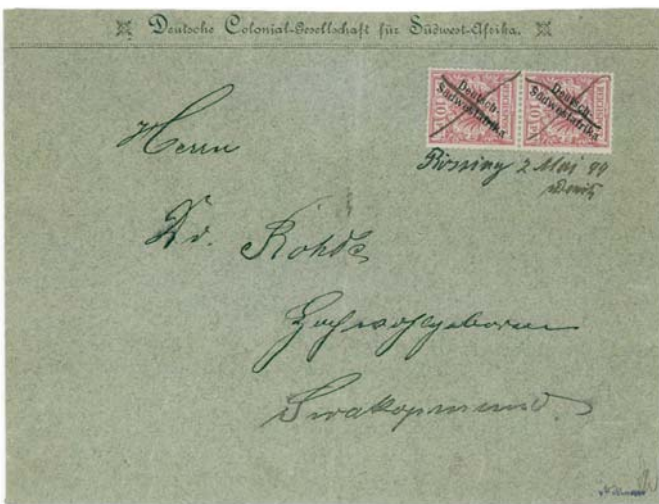 Deutsche Colonial-Gesellschaft für Südwest-Afrika.
REICHSPOST
Deutsch-
Südwestafrika
10 PF
REICHSPOST
Deutsch-
Südwestafrika
10 PF
Rössing 2 Mai 99
Herrn
Dr. Rohde
Hochwohlgeboren
Swakopmund.